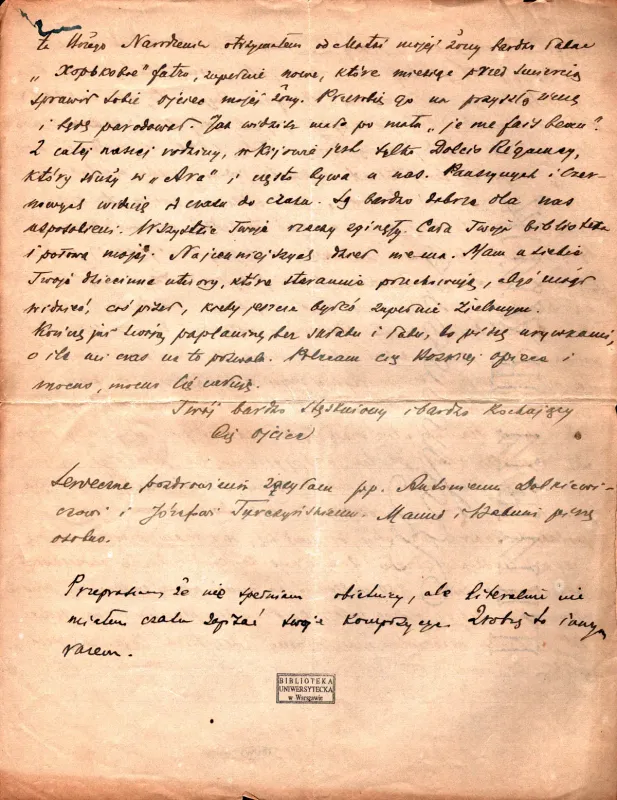 te Bożego Narodzenia otrzymałem od Matki mojej żony bardzo ładne
„Хорьковое" futro, zupełnie nowe, które miesiąc przed śmiercią
sprawił sobie ojciec mojej żony. Przerobię go na przyszłą zimę
i będę paradował. Jak widzisz mało po mału „je me fais beau".
Z całej naszej rodziny, w Kijowie jest tylko Dolcio Rigamey,
który służy w „Ara" i często bywa u nas. i Czer-
nowych widuję od czasu do czasu. Są bardzo dobrze dla nas
usposobieni. Wszystkie Twoje rzeczy zginęły. Cała Twoja biblioteka
i połowa mojej. Najcenniejszych dzieł nie ma. Mam u siebie
Twoje dziecinne utwory, które starannie przechowuję, abyś mógł
widzieć, coś pisał, kiedy jeszcze byłeś zupełnie zielonym.
Kończę już swoją paplaninę bez składu i ładu, bo piszę urywkami,
o ile mi czas na to pozwala. Polecam Cię Boskiej opiece i
mocno, mocno Cię całuję.
Twój bardzo stęskniony i bardzo kochający
Cię ojciec
Serdeczne pozdrowienia zasyłam pp. Antoniemu
i Józefowi Turczyńskiemu. Mamie i piszę
osobno.
Przepraszam że nie spełniam obietnicy, ale literalnie nie
miałem czasu zapisać swoje kompozycje. Zrobię to innym
razem.
BIBLIOTEKA
UNIWERSYTECKA
w Warszawie